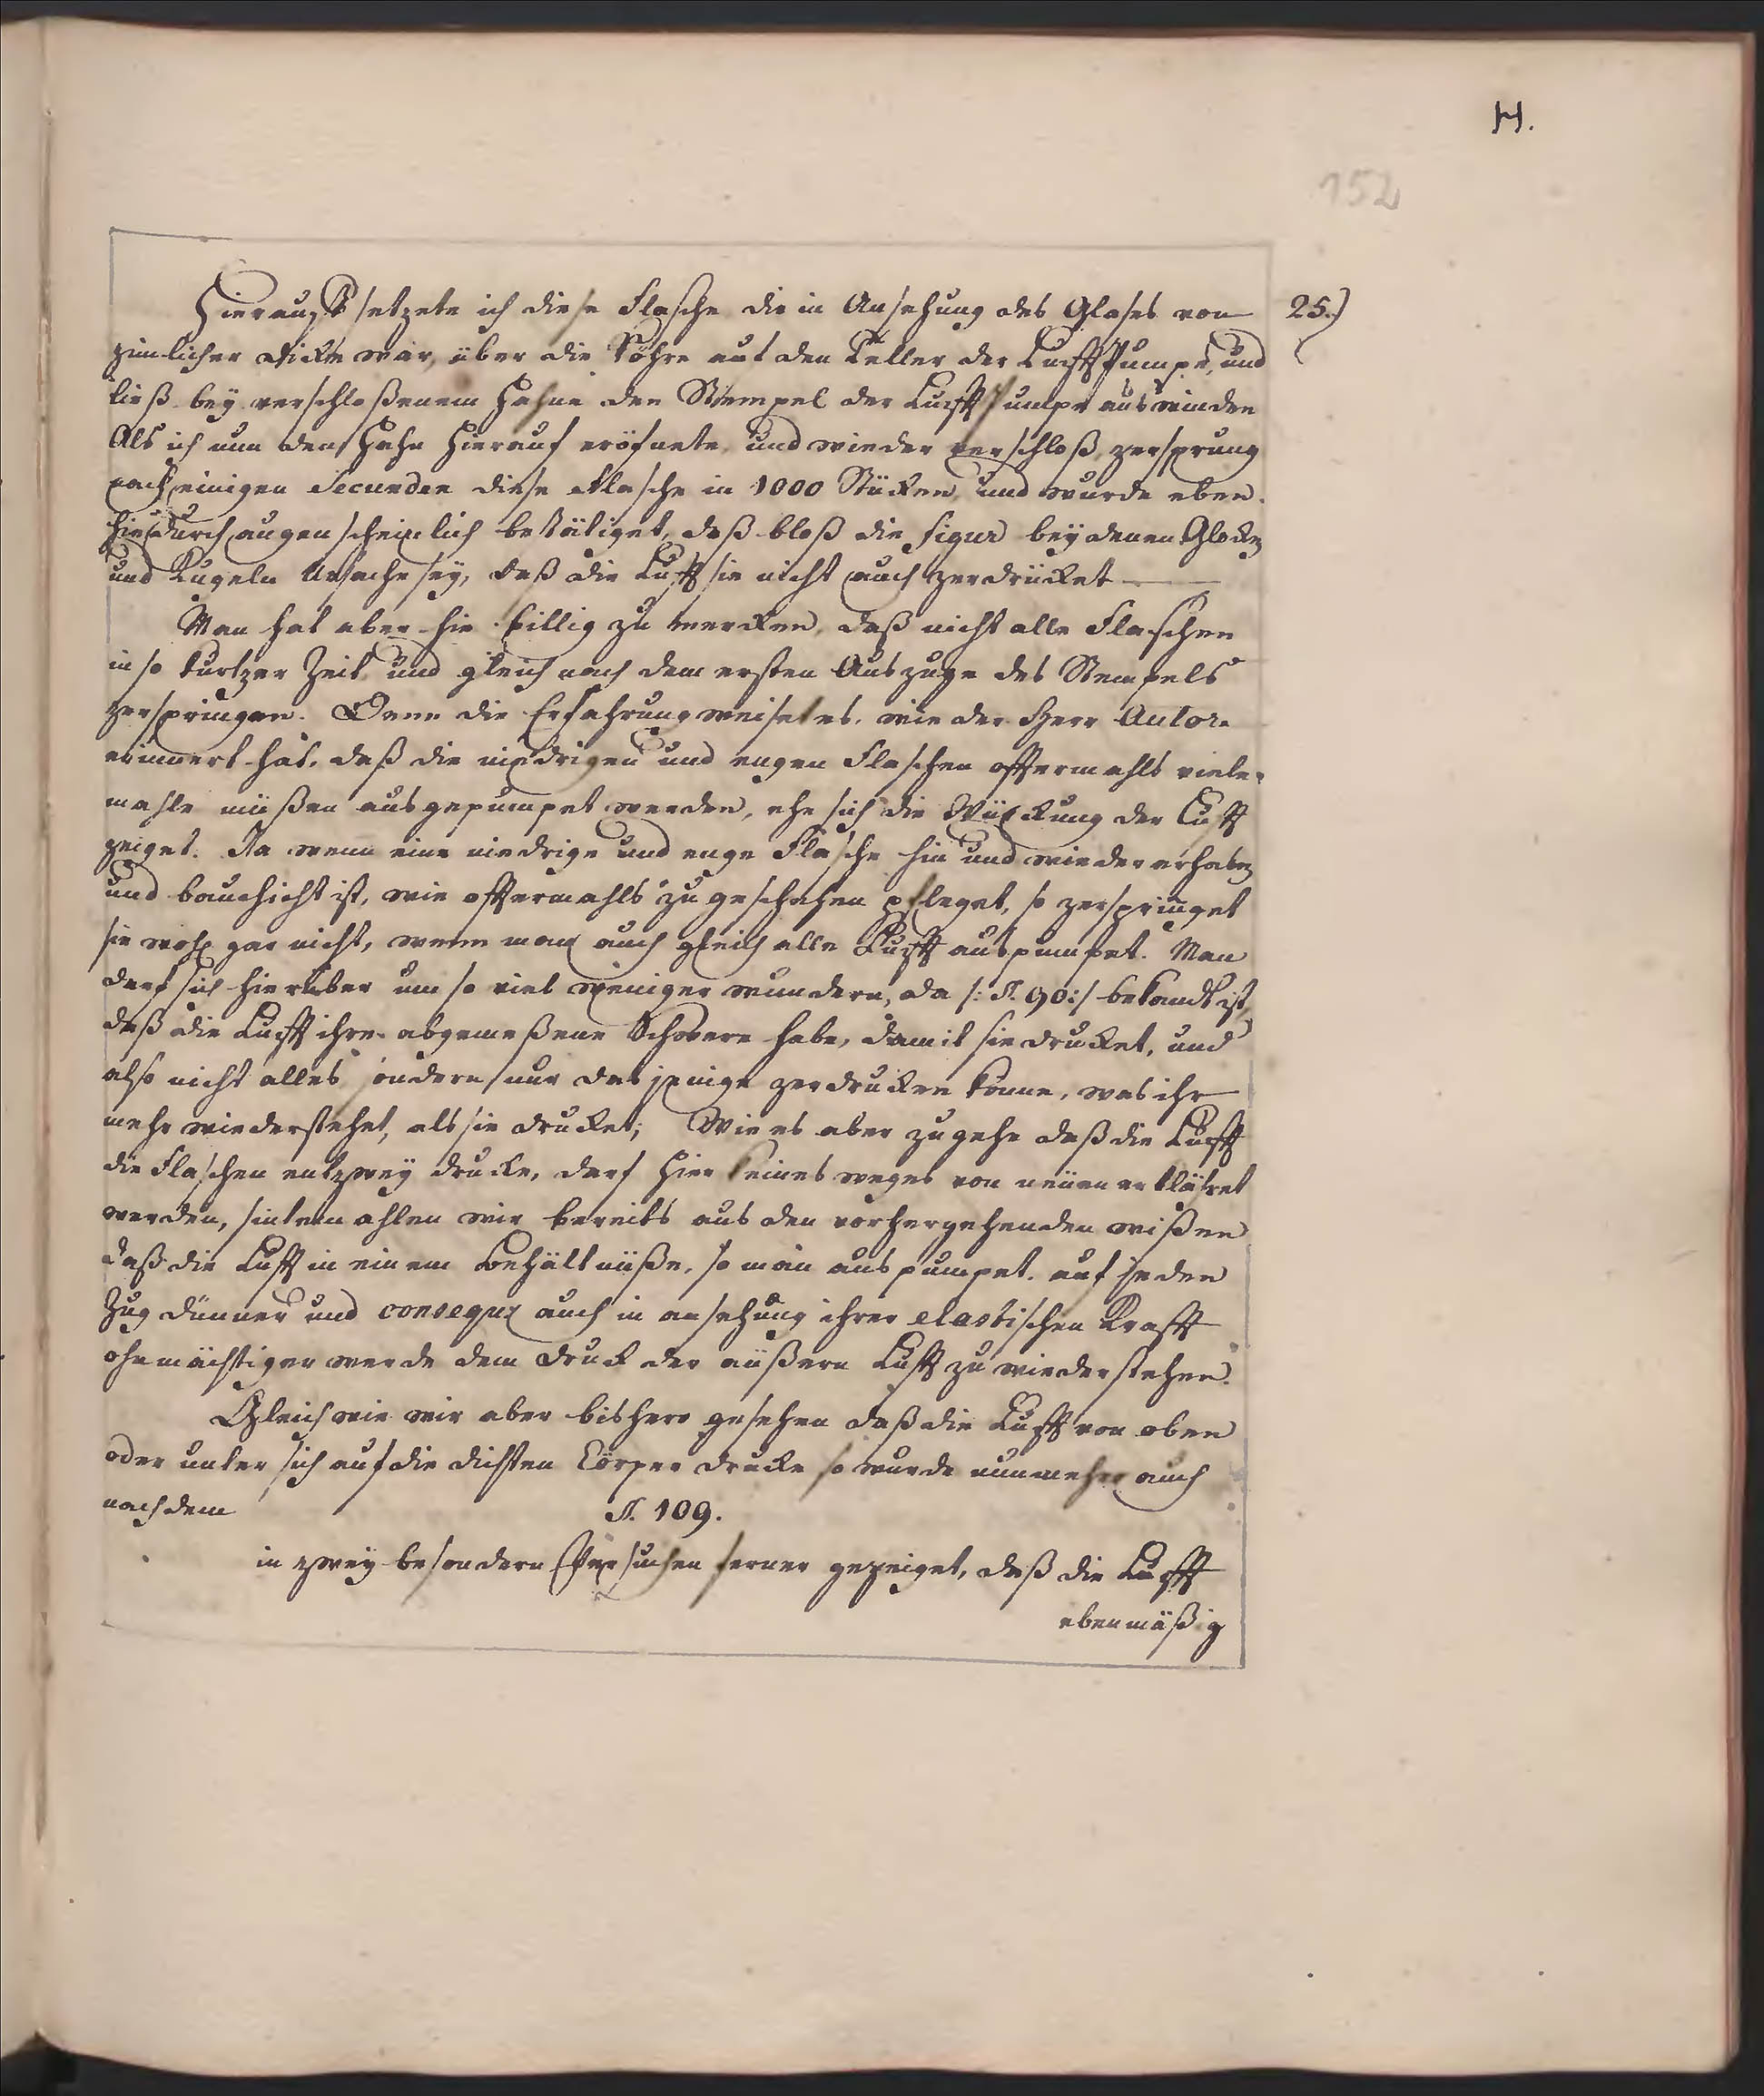 H.
152
Hierauff setzete ich diese Flasche die in Ansehung des Glases von 25.)
zimlicher dicke war, über die Röhre auf den Teller der LufftPumpe, und
ließ bey verschloßenem Hahne den Stempel der LufftPumpe auswinden
Als ich nun den Hahn hierauf eröfnete und wieder verschloß, zersprung
nach einigen Secunden diese Flasche in 1000 Stücken, und wurde eben
hiedurch augenscheinlich bestätiget, daß bloß die figur bey denen Glocken
und Kugeln Ursache sey, daß die Lufft sie nicht auch zerdrücket
Man hat aber hie billig zu mercken, daß nicht alle Flaschen
in so kurtzer Zeit und gleich nach dem ersten Auszuge des Stempels
zerspringen. Denn die Erfahrung weiset es, wie der Herr Autor
erinnert hat, daß die niedrigen und engen Flaschen offtermahls viele
mahle müßen ausgepumpet werden, ehe sich die Würckung der Lufft
zeiget. Ja wenn eine niedrige und enge Flasche hin und wieder erhaben
und bauchicht ist, wie offtermahls zu geschehen pfleget, so zerspringet
sie wohl gar nicht, wenn man auch gleich alle Lufft auspumpet. Man
darf sich hierüber um so viel weniger wundern, da /: §. 90 :/ bekandt ist,
daß die Lufft ihre abgemeßene Schwere habe, damit sie drucket, und
also nicht alles sondern nur dasjenige zerdrucken könne, was ihr
mehr wiederstehet, als sie drucket; Wie es aber zugehe daß die Lufft
die Flaschen entzwey drucke, darf hier keines weges von neüen erklähret
werden, sintemahlen wir bereits aus den vorhergehenden wißen
daß die Lufft in einem Behältnüße, so man auspumpet, auf jeden
Zug dünner und conseqv auch in ansehung ihrer elastischen Krafft
ohnmächtiger werde dem druck der äüßern Lufft zu wiederstehen.
Gleichwie wir aber bishero gesehen daß die Lufft von oben
oder unter sich auf die dichten Cörper drucke so wurde nunmehro auch
nach dem §. 109.
in zwey besondern Versuchen ferner gezeiget, daß die Lufft
ebenmäßig